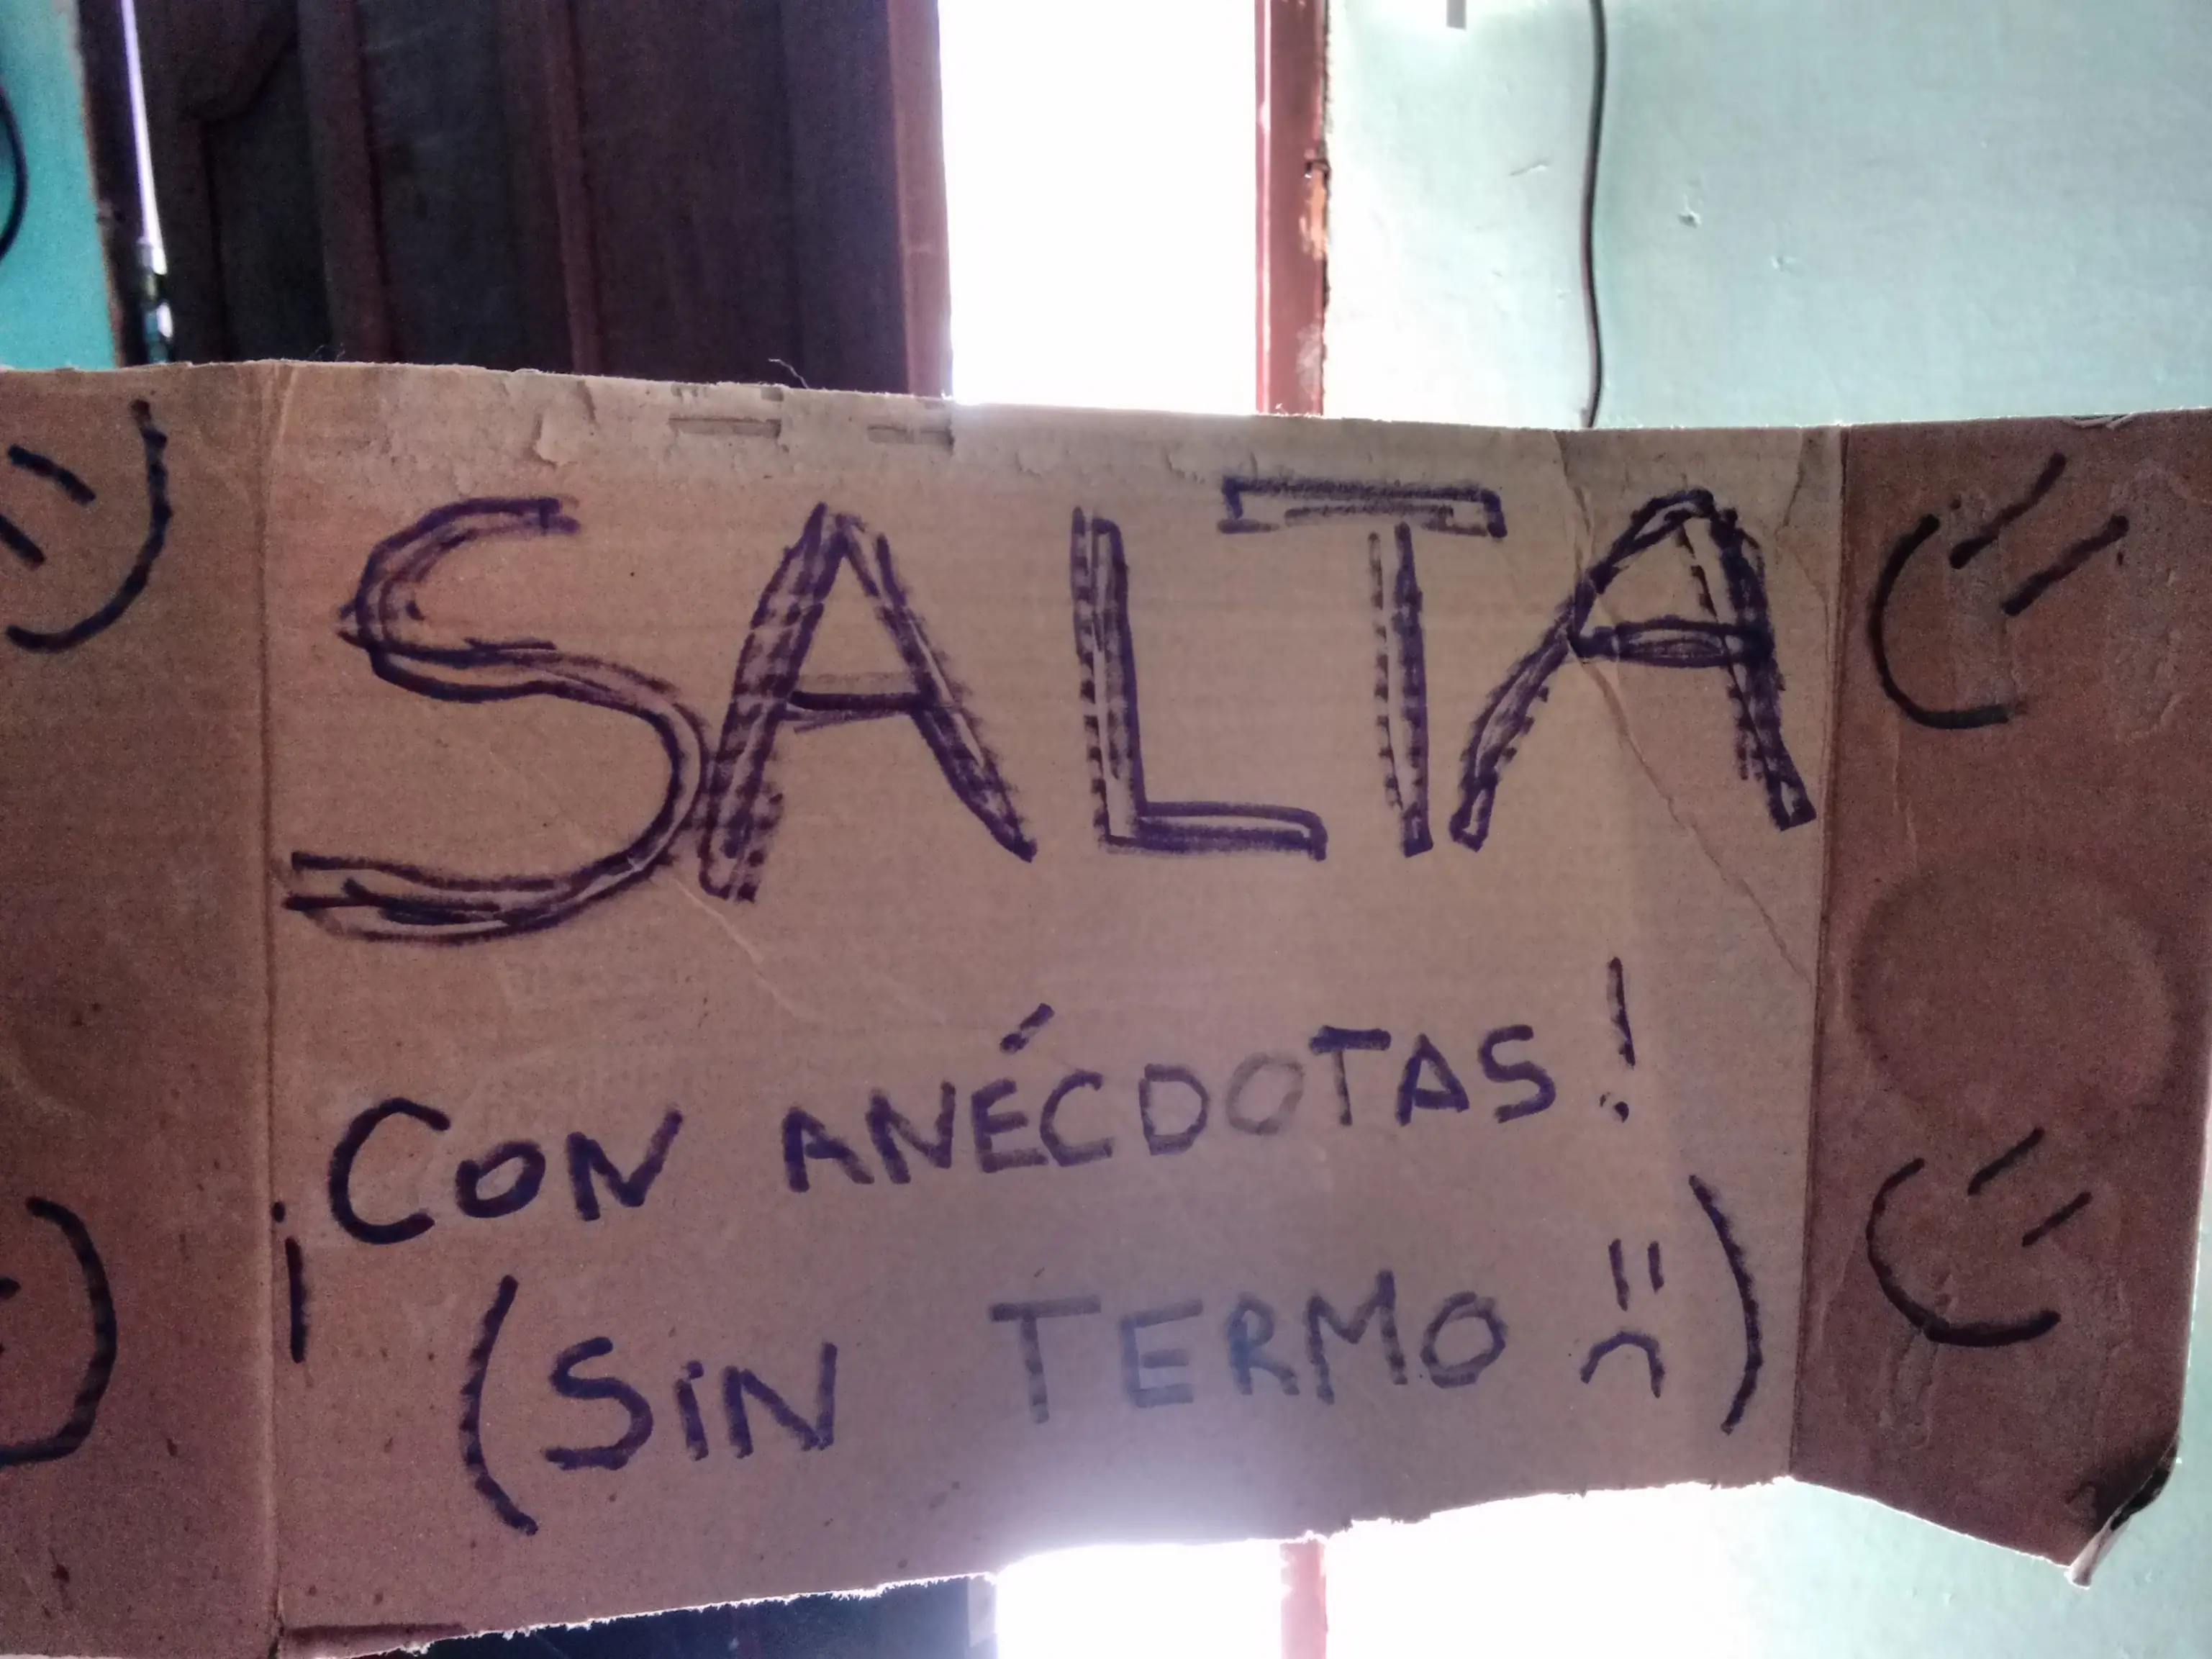 SALTA
¡CON ANÉCDOTAS!
(SiN TERMO :()